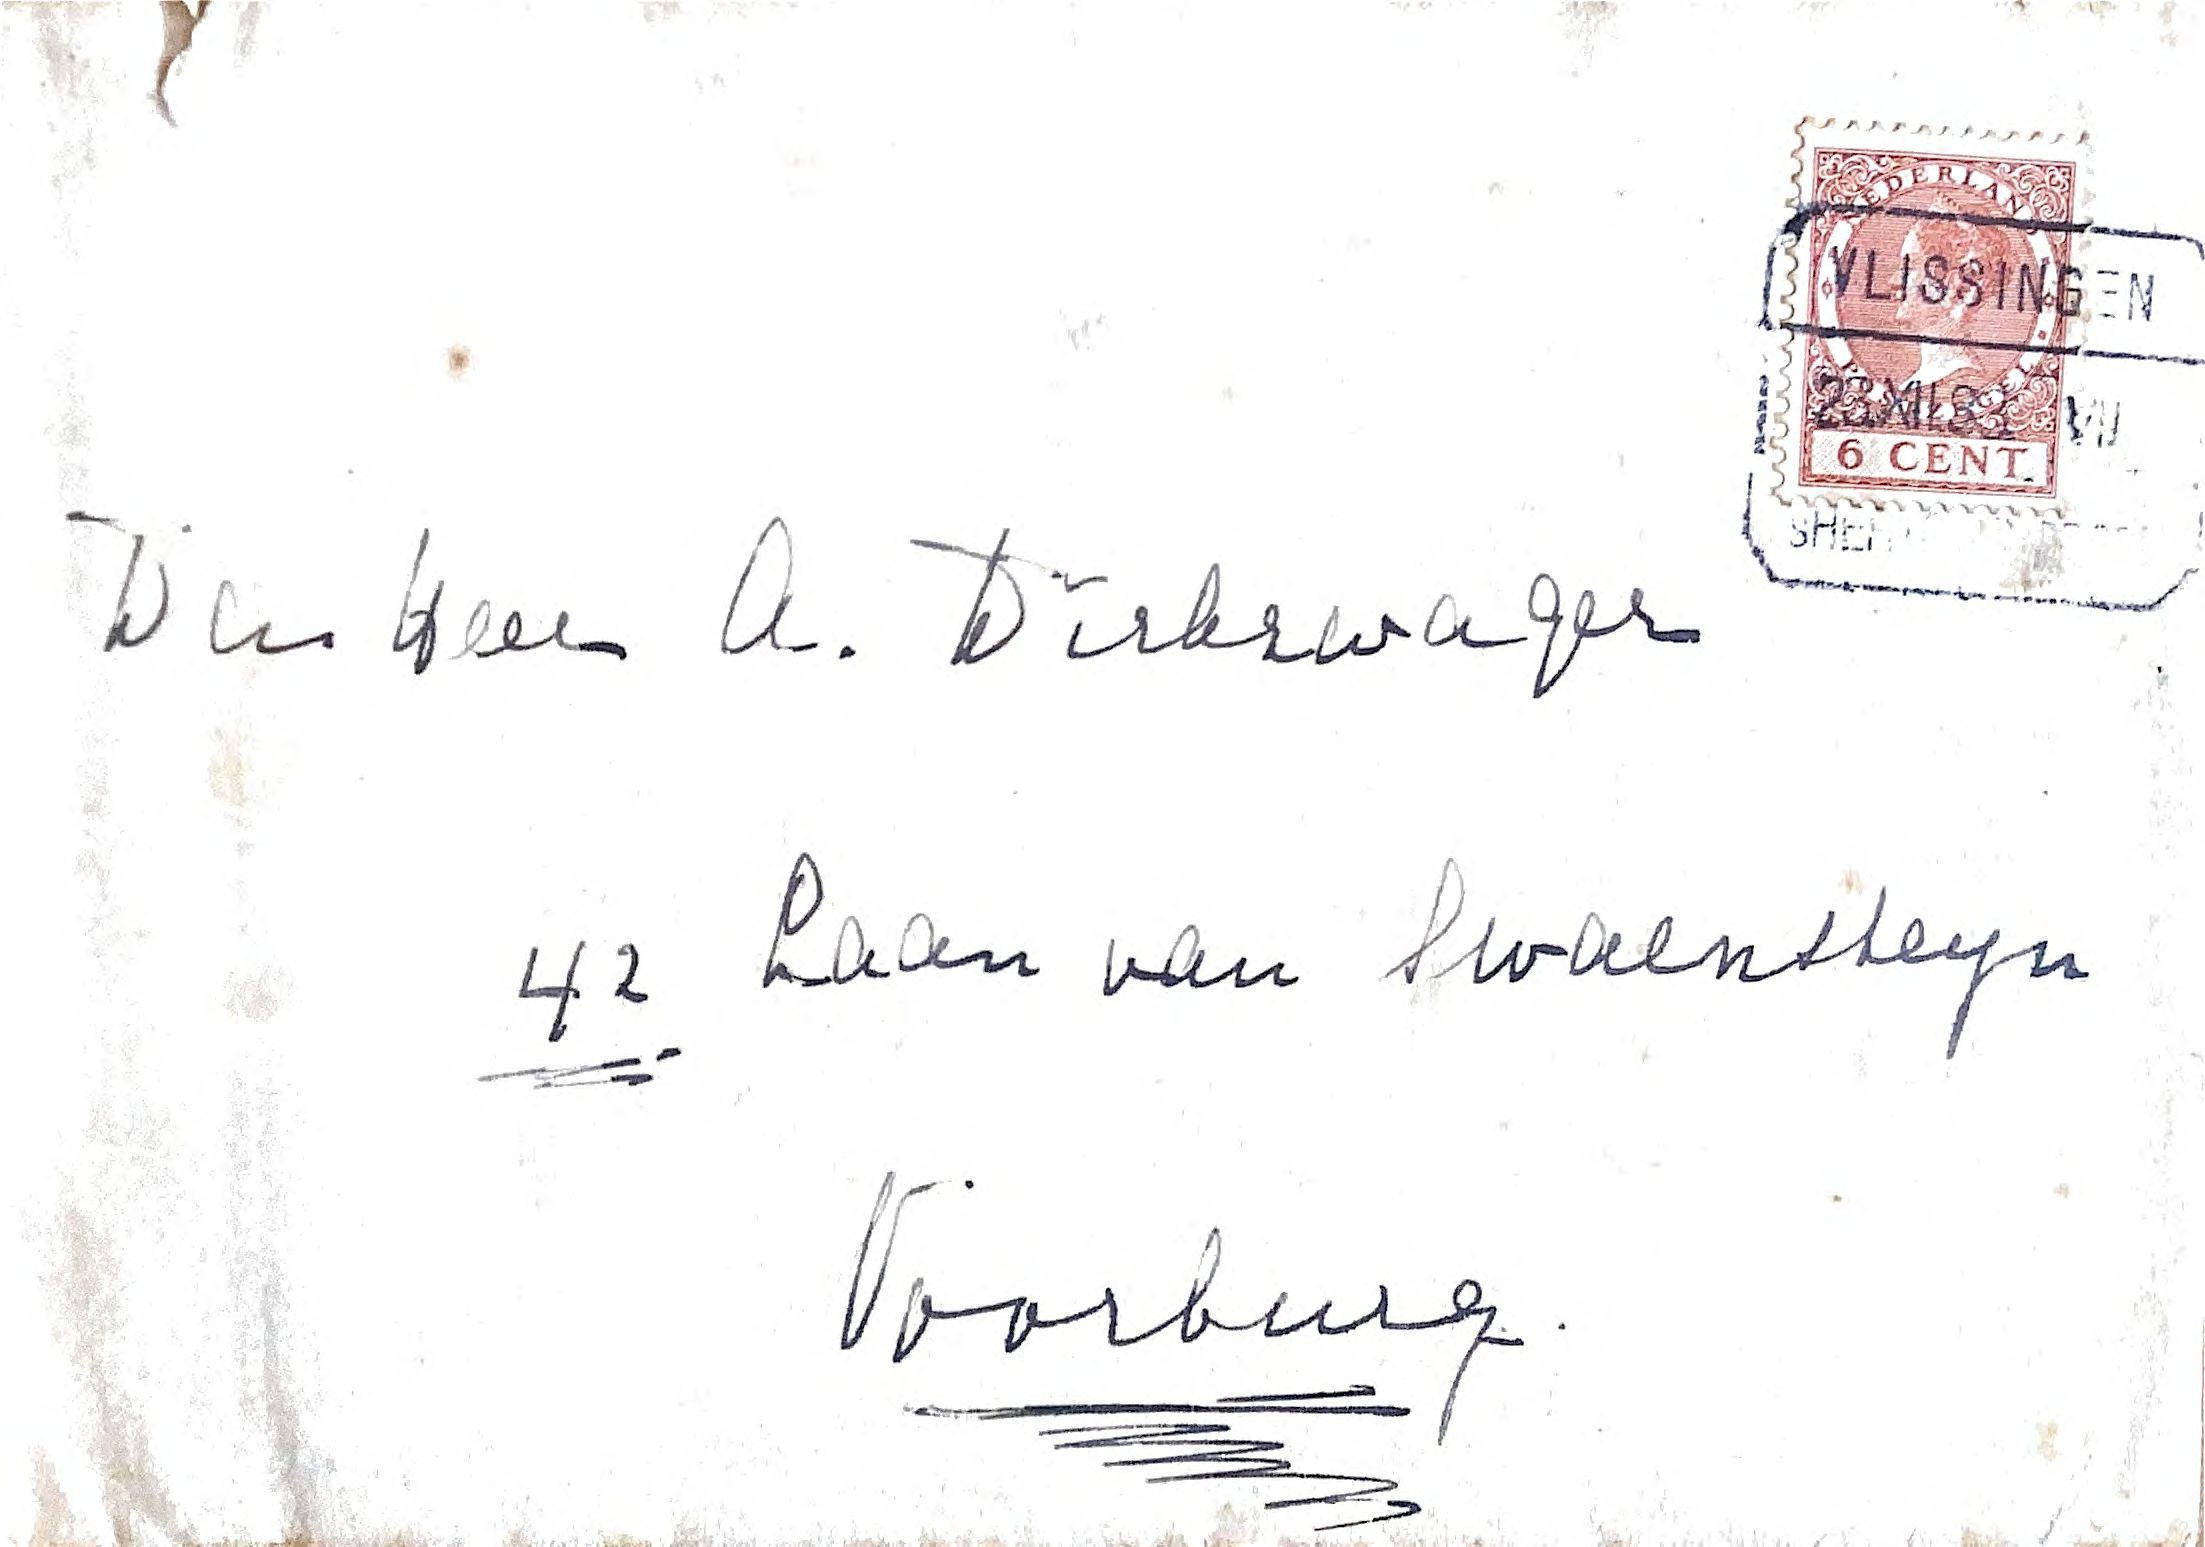 NEDERLAND
VLISSINGEN
6 CENT
Den Heer A. Dirkzwager
42 Laan van Swaensteyn
Voorburg.